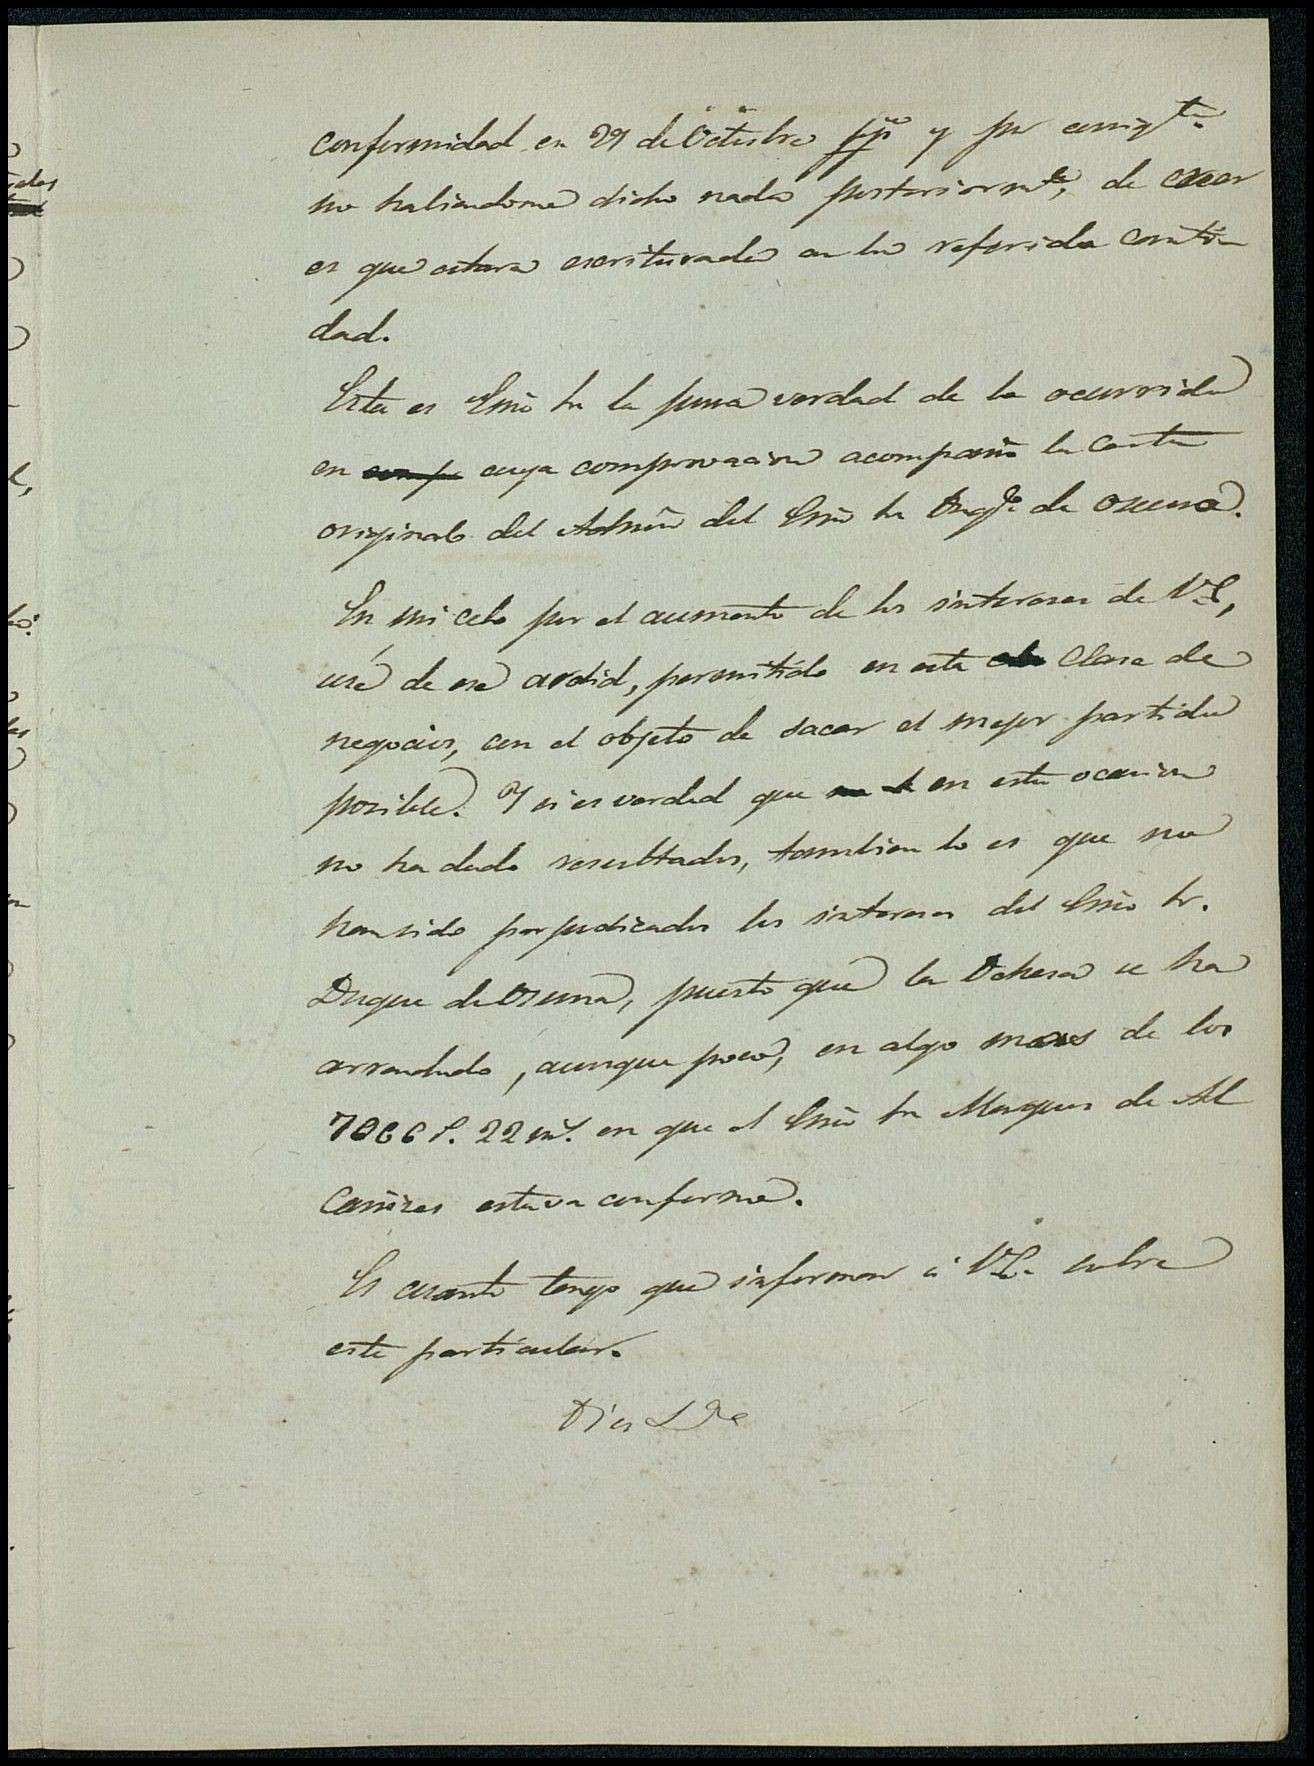 conformidad en 29 de Octubre ppº y por consigte
no habiendome dicho nada posteriormte, de creer
es que estara escriturada en la referida canti
dad.
Esta es Exmo Sr la pura verdad de lo ocurrido
en cuya comprovacion acompaño la carta
original del Admor del Exmo Sr Duqe de Osuna.
En mi celo por el aumento de los intereses de V.E,
usé de ese ardid, permitido en esta clase de
negocios, con el objeto de sacar el mejor partido
posible. Y si es verdad que en esta ocasion
no ha dado resultados, tambien lo es que no
han sido perjudicados los intereses del Exmo Sr.
Duque de Osuna, puesto que la Dehesa se ha
arrendado, aunque poco, en algo mas de los
7066 r. 22 ms. en que el Exmo Sr Marques de Al
cañizes estava conforme.
Es cuanto tengo que informar á V.E. sobre
este particular.
Dios &